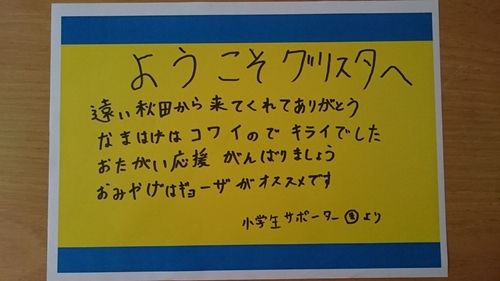 ようこそグリスタへ
遠い秋田から来てくれてありがとう
なまはげはコワイのでキライでした
おたがい応援がんばりましょう
おみやげはギョーザがオススメです
小学生サポーターより